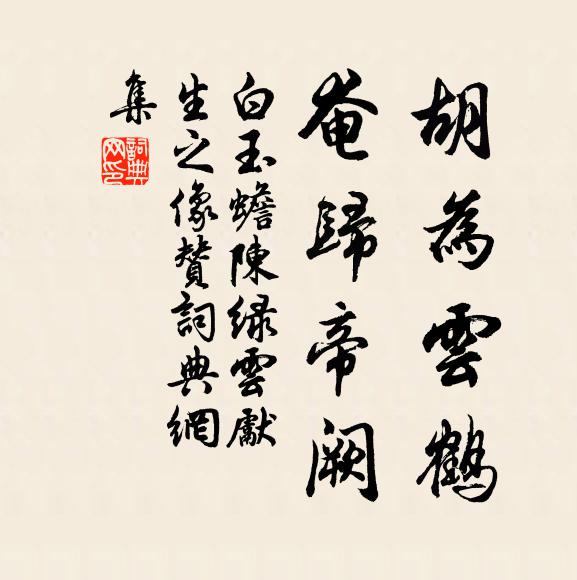 胡為雲鶴
奄歸帝闕
白玉蟾陳綠雲獻
生之像贊詞典網
集
詞典
网印